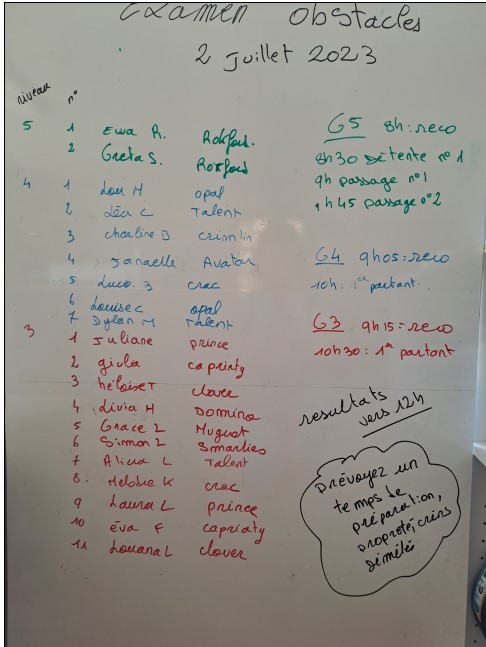 Examen obstacles
2 juillet 2023
niveau n°
5 1 Ewa R. Rokford.
2 Greta S. Rokford
4 1 Lou M opal
2 Léa C Talent
3 charline D crimlin
4 Janaelle Avatar
5 Luca. B crac
6 Louise c opal
7 Dylan M Talent
3 1 Juliane prince
2 giulia capriaty
3 héloïse T clover
4 Livia H Domino
5 Grace L Muguet
6 Simon Z Smarties
7 Alicia L Talent
8. Melodie K crac
9 Laura L prince
10 éva F capriaty
11 Louana L clover
G5 8h : reco
8h30 détente n°1
9h passage n°1
9h45 passage n°2
G4 9h05 : reco
10h : 1er partant.
G3 9h15 = reco
10h30 : 1er partant
resultats
vers 12h
prévoyez un
temps de
préparation,
propreté, crins
démélés